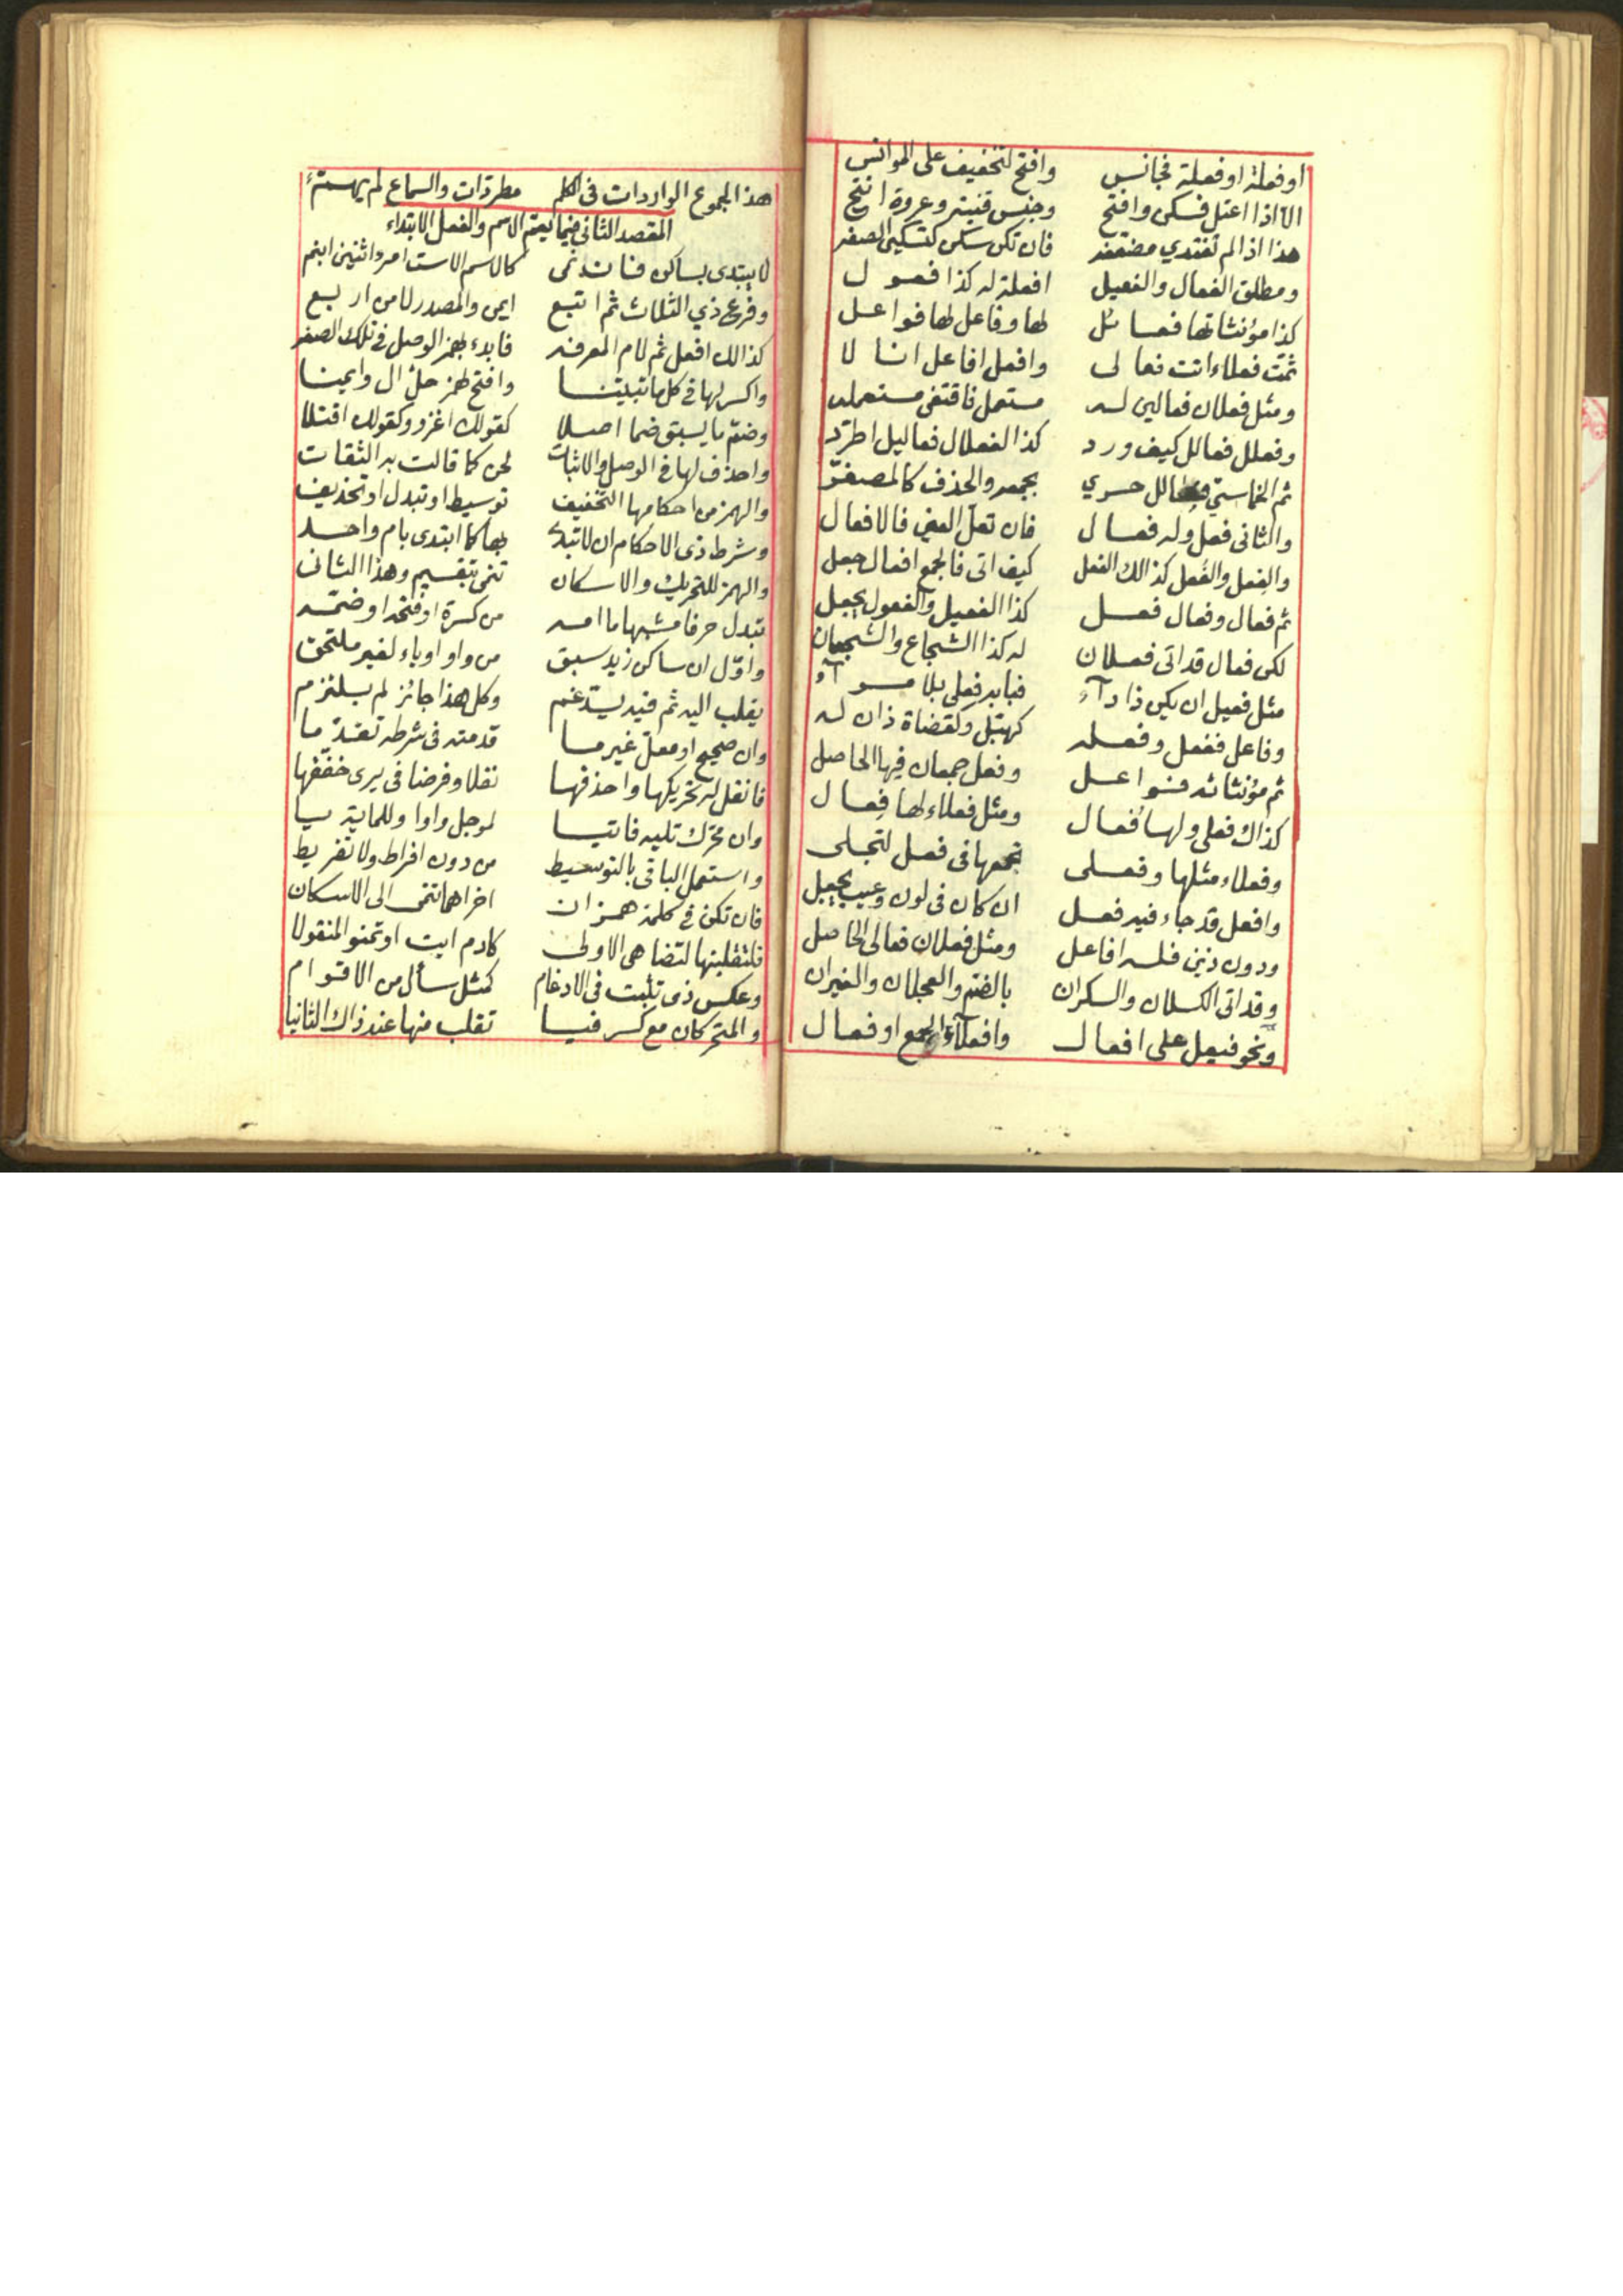 او فعلة او فعلة فجانس وافتح لتخفيف على الموانس
الا اذا اعتل فسكن وافتح وجنس قنية وعروة انتح
هذا اذا لم تغتدي مضعفه فان تكن سكن كتسكين الصفه
ومطلق الفعال والفعيل افعلة له كذا فعول
كذا مؤنثاتها فعائل لها وفاعل لها فواعل
ثمت فعلاء اتت فعالى وافعل افاعل انا لا
ومثل فعلان فعالين له مستعمل فاقتفي مستعمله
وفعلل فعالل كيف ورد كذا الفعلال فعاليل اطرد
ثم الخماسي فعالل حري بجمعه والحذف كالمصغر
والثانى فعل وله فعال فان تعل العين فالافعال
والفعل والفعل كذالك الفعل كيف اتى فالجمع افعال جعل
ثم فعال وفعال فعل كذا الفعيل والفعول يجعل
لكن فعال قد اتى فعلان له كذا الشجاع والشجعان
مثل فعيل ان يكن ذا دآء فبابه فعلى بلا مرآء
وفاعل ففعل وفعله كهتبل وكقضاة ذان له
ثم مؤنثاته فواعل وفعل جمعان فيها الحاصل
كذاك فعلى ولها فعال ومثل فعلاء لها فعال
وفعلاء مثلها وفعلى تجمعها فى فعل لتجلى
وافعل قد جاء فيه فعل ان كان فى لون وعيب يجعل
ودون ذين فله افاعل ومثل فعلان فعالى الحاصل
وقد اتى الكسلان والسكران بالضم والعجلان والغيران
ونحو فيعل على افعال وافعلآء الجمع او فعال
هذا الجموع الواردات فى الكلم مطردات والسماع لم يهم
المقصد الثانى فيما يعم الاسم والفعل الابتداء
لا يبتدى بساكن كالاسم الاست امرء اثنين ابنم
وفرع ذي الثلاث ثم اتبع ايمن والمصدر لا من اربع
كذالك افعل ثم لام المعرفه فابدء بهمز الوصل فى تلك الصفه
واكسر لها فى كل ما وافتح لهمز حل ال وايمنا
وضم ما يسبق ضما اصلا كقولك اغزو وكقولك اقتلا
واحذف لها فى الوصل والاثبات لحن كما قالت به الثقات
والهمز من احكامها التخفيف توسيط او تبدل او تحذيف
وشرط ذى الاحكام ان لا تبتدا بها كما ابتدى بام واحد
والهمز للتحريك والاسكان تنمى بتقسيم وهذا الثانى
تبدل حرفا مشبها ما امه من كسرة او فتحة او ضمه
واول ان ساكن زيد سبق من واو او ياء لغير ملتحق
يقلب اليه ثم فيه يدغم وكل هذا جائز لم يلتزم
وان صحيح او معل غير ما قدمته فى شرطه تقدما
فانقل له تحريكها واحذفها نقلا وفرضا فى يرى خففها
وان محرك تليه فاتيا لموجل واوا وللماية يا
واستعمل الباقى بالتوسيط من دون افراط ولا تفريط
فان تكن فى كلمة همزان اخراهما تنمى الى الاسكان
فلتقلبنها لتضاهى الاولى كادم ايت اوتمنو المنقولا
وعكس ذى تثبت فى الادغام كمثل سأل من الاقوام
والمتحركان مع كسر فيا تقلب منها عند ذاك الثانيا